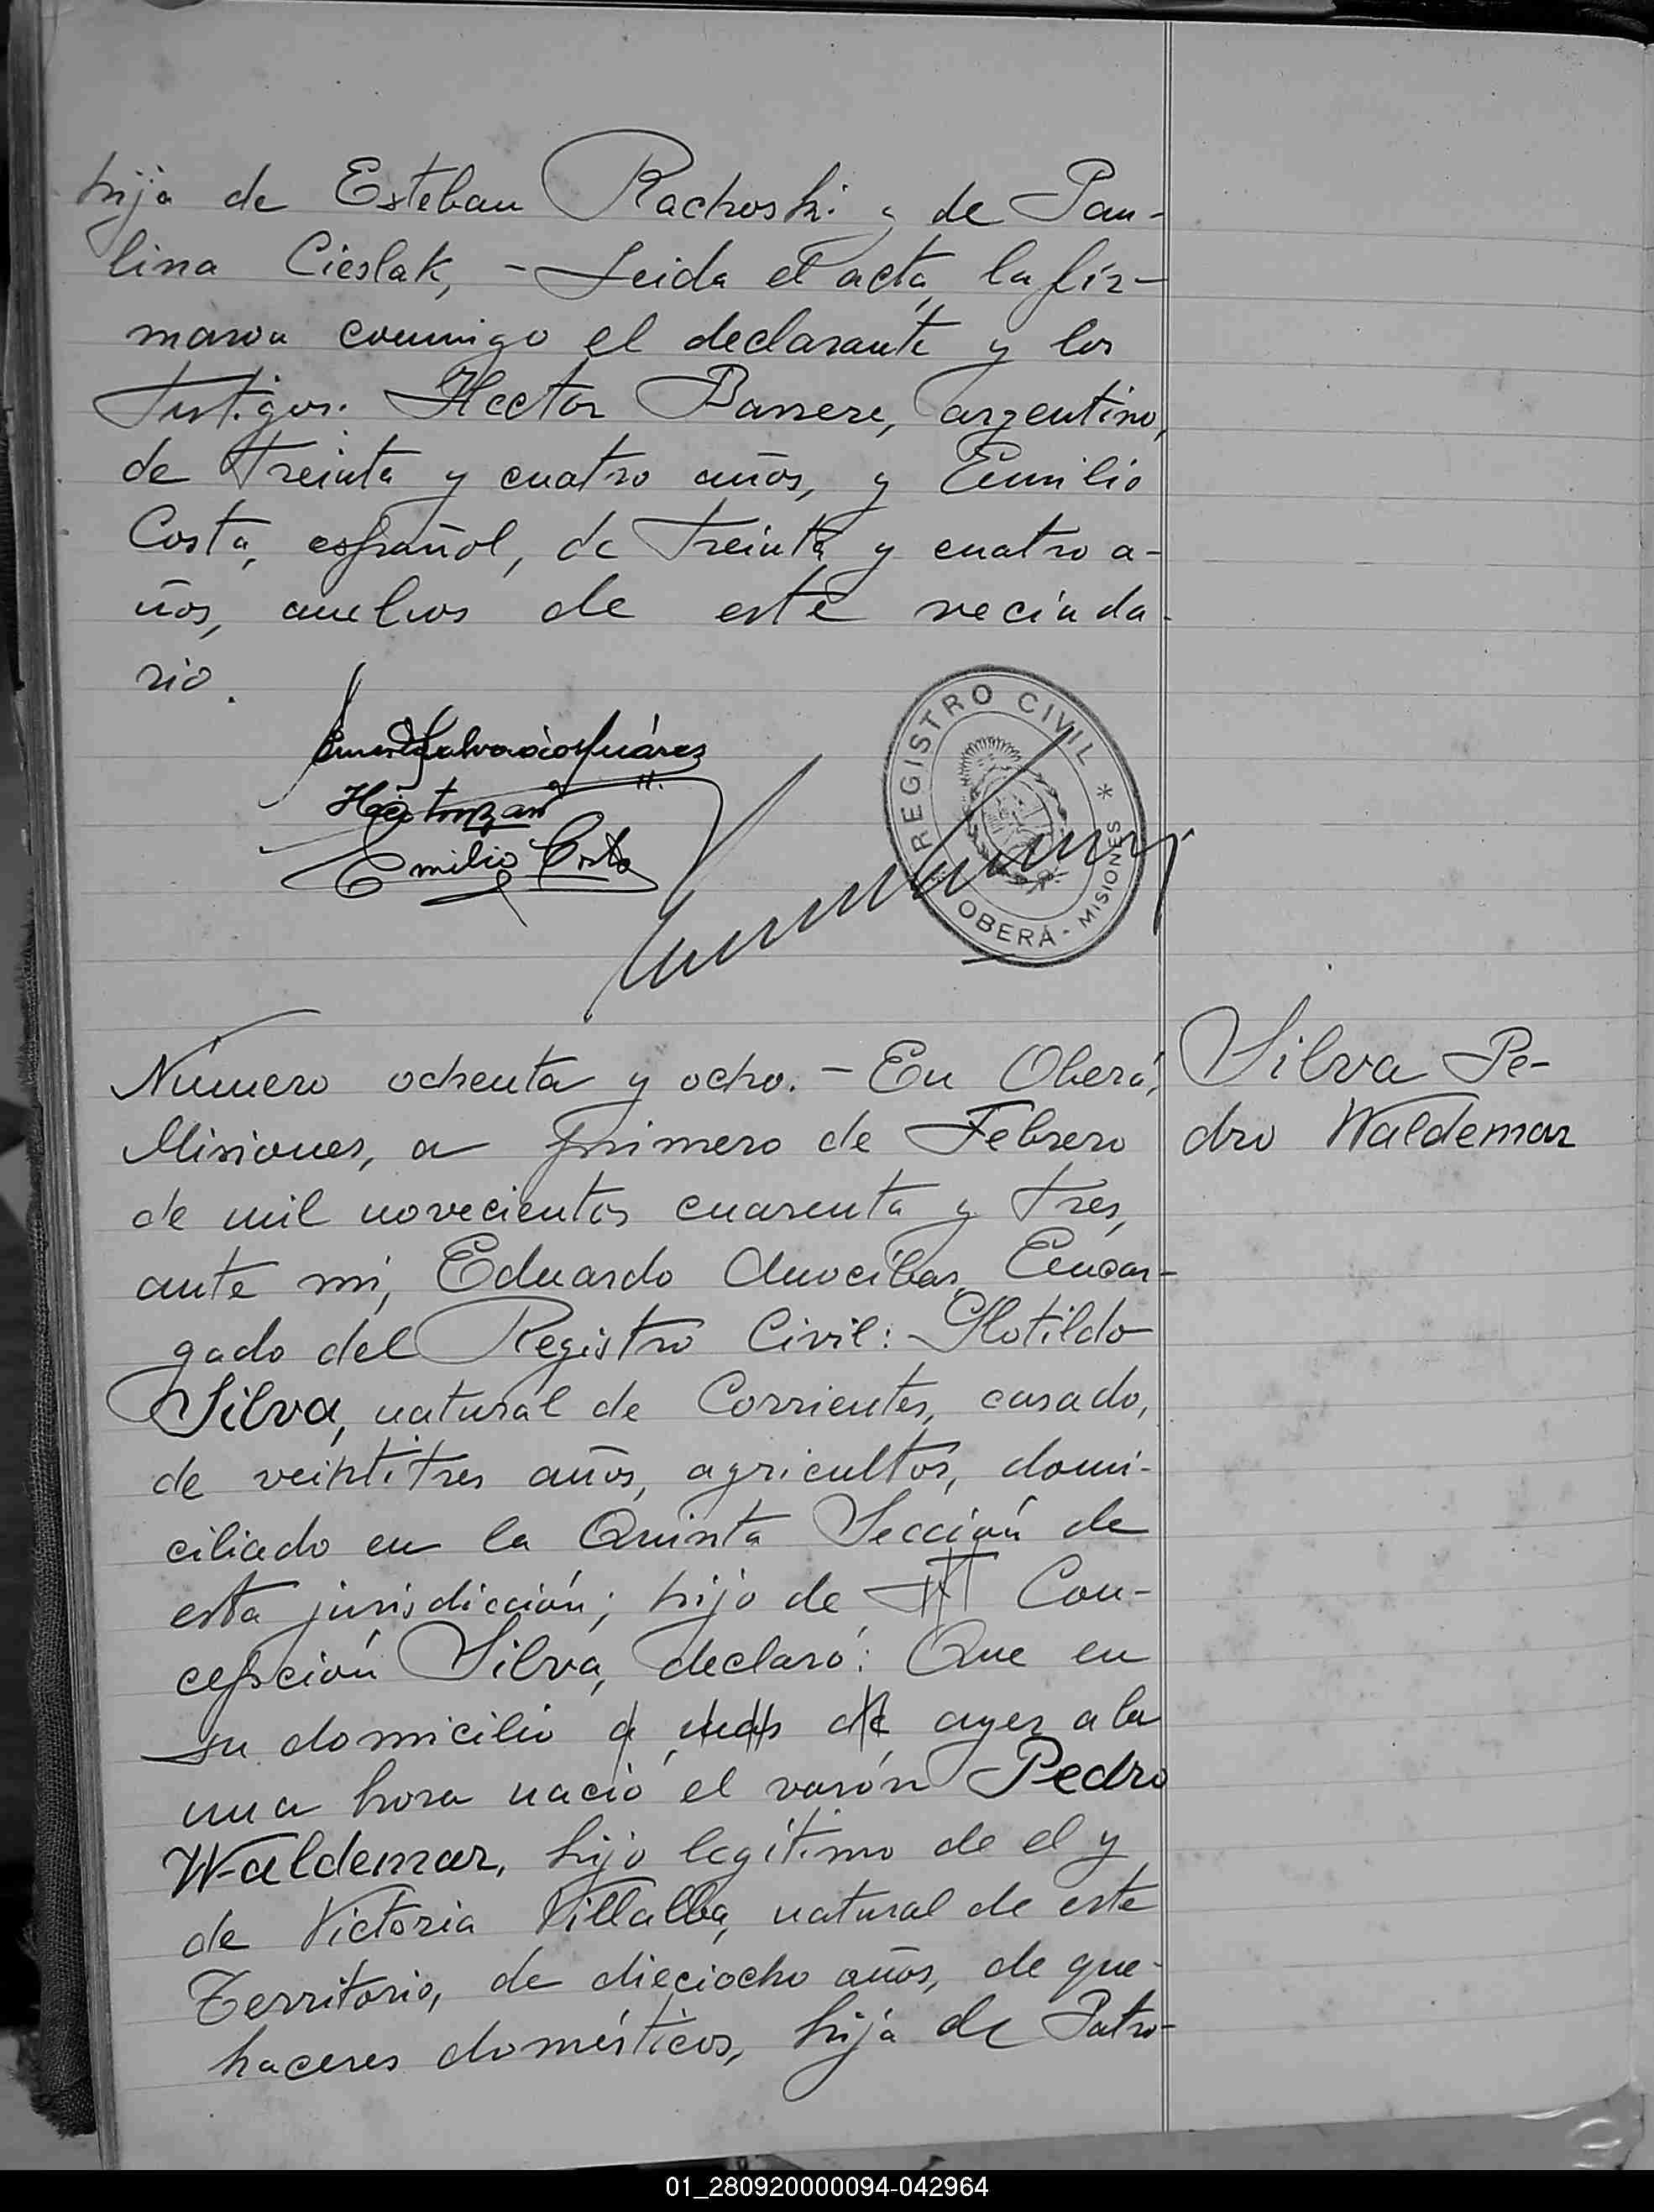 hija de Esteban Rachoski y de Pau-
lina Cieslak, - Leida el acta, la fir-
maron conmigo el declarante y los
testigos: Hector Barrere, argentino,
de treinta y cuatro años, y Emilio
Costa, español, de treinta y cuatro a-
ños, ambos de este vecinda-
rio.
Emilio Costa
REGISTRO CIVIL *
OBERÁ - MISIONES
Número ochenta y ocho. - En Oberá,
Misiones, a primero de Febrero
de mil novecientos cuarenta y tres,
ante mi, Eduardo Anocibar, Encar-
gado del Registro Civil: Clotildo
Silva, natural de Corrientes, casado,
de veintitres años, agricultor, domi-
ciliado en la Quinta Sección de
esta jurisdicción; hijo de Con-
cepción Silva, declaró: Que en
su domicilio ayer a la
una hora nació el varón Pedro
Waldemar, hijo legítimo de el y
de Victoria Villalba, natural de este
Territorio, de dieciocho años, de que-
haceres domésticos, hija de Patro-
Silva Pe-
dro Waldemar
01_280920000094-042964